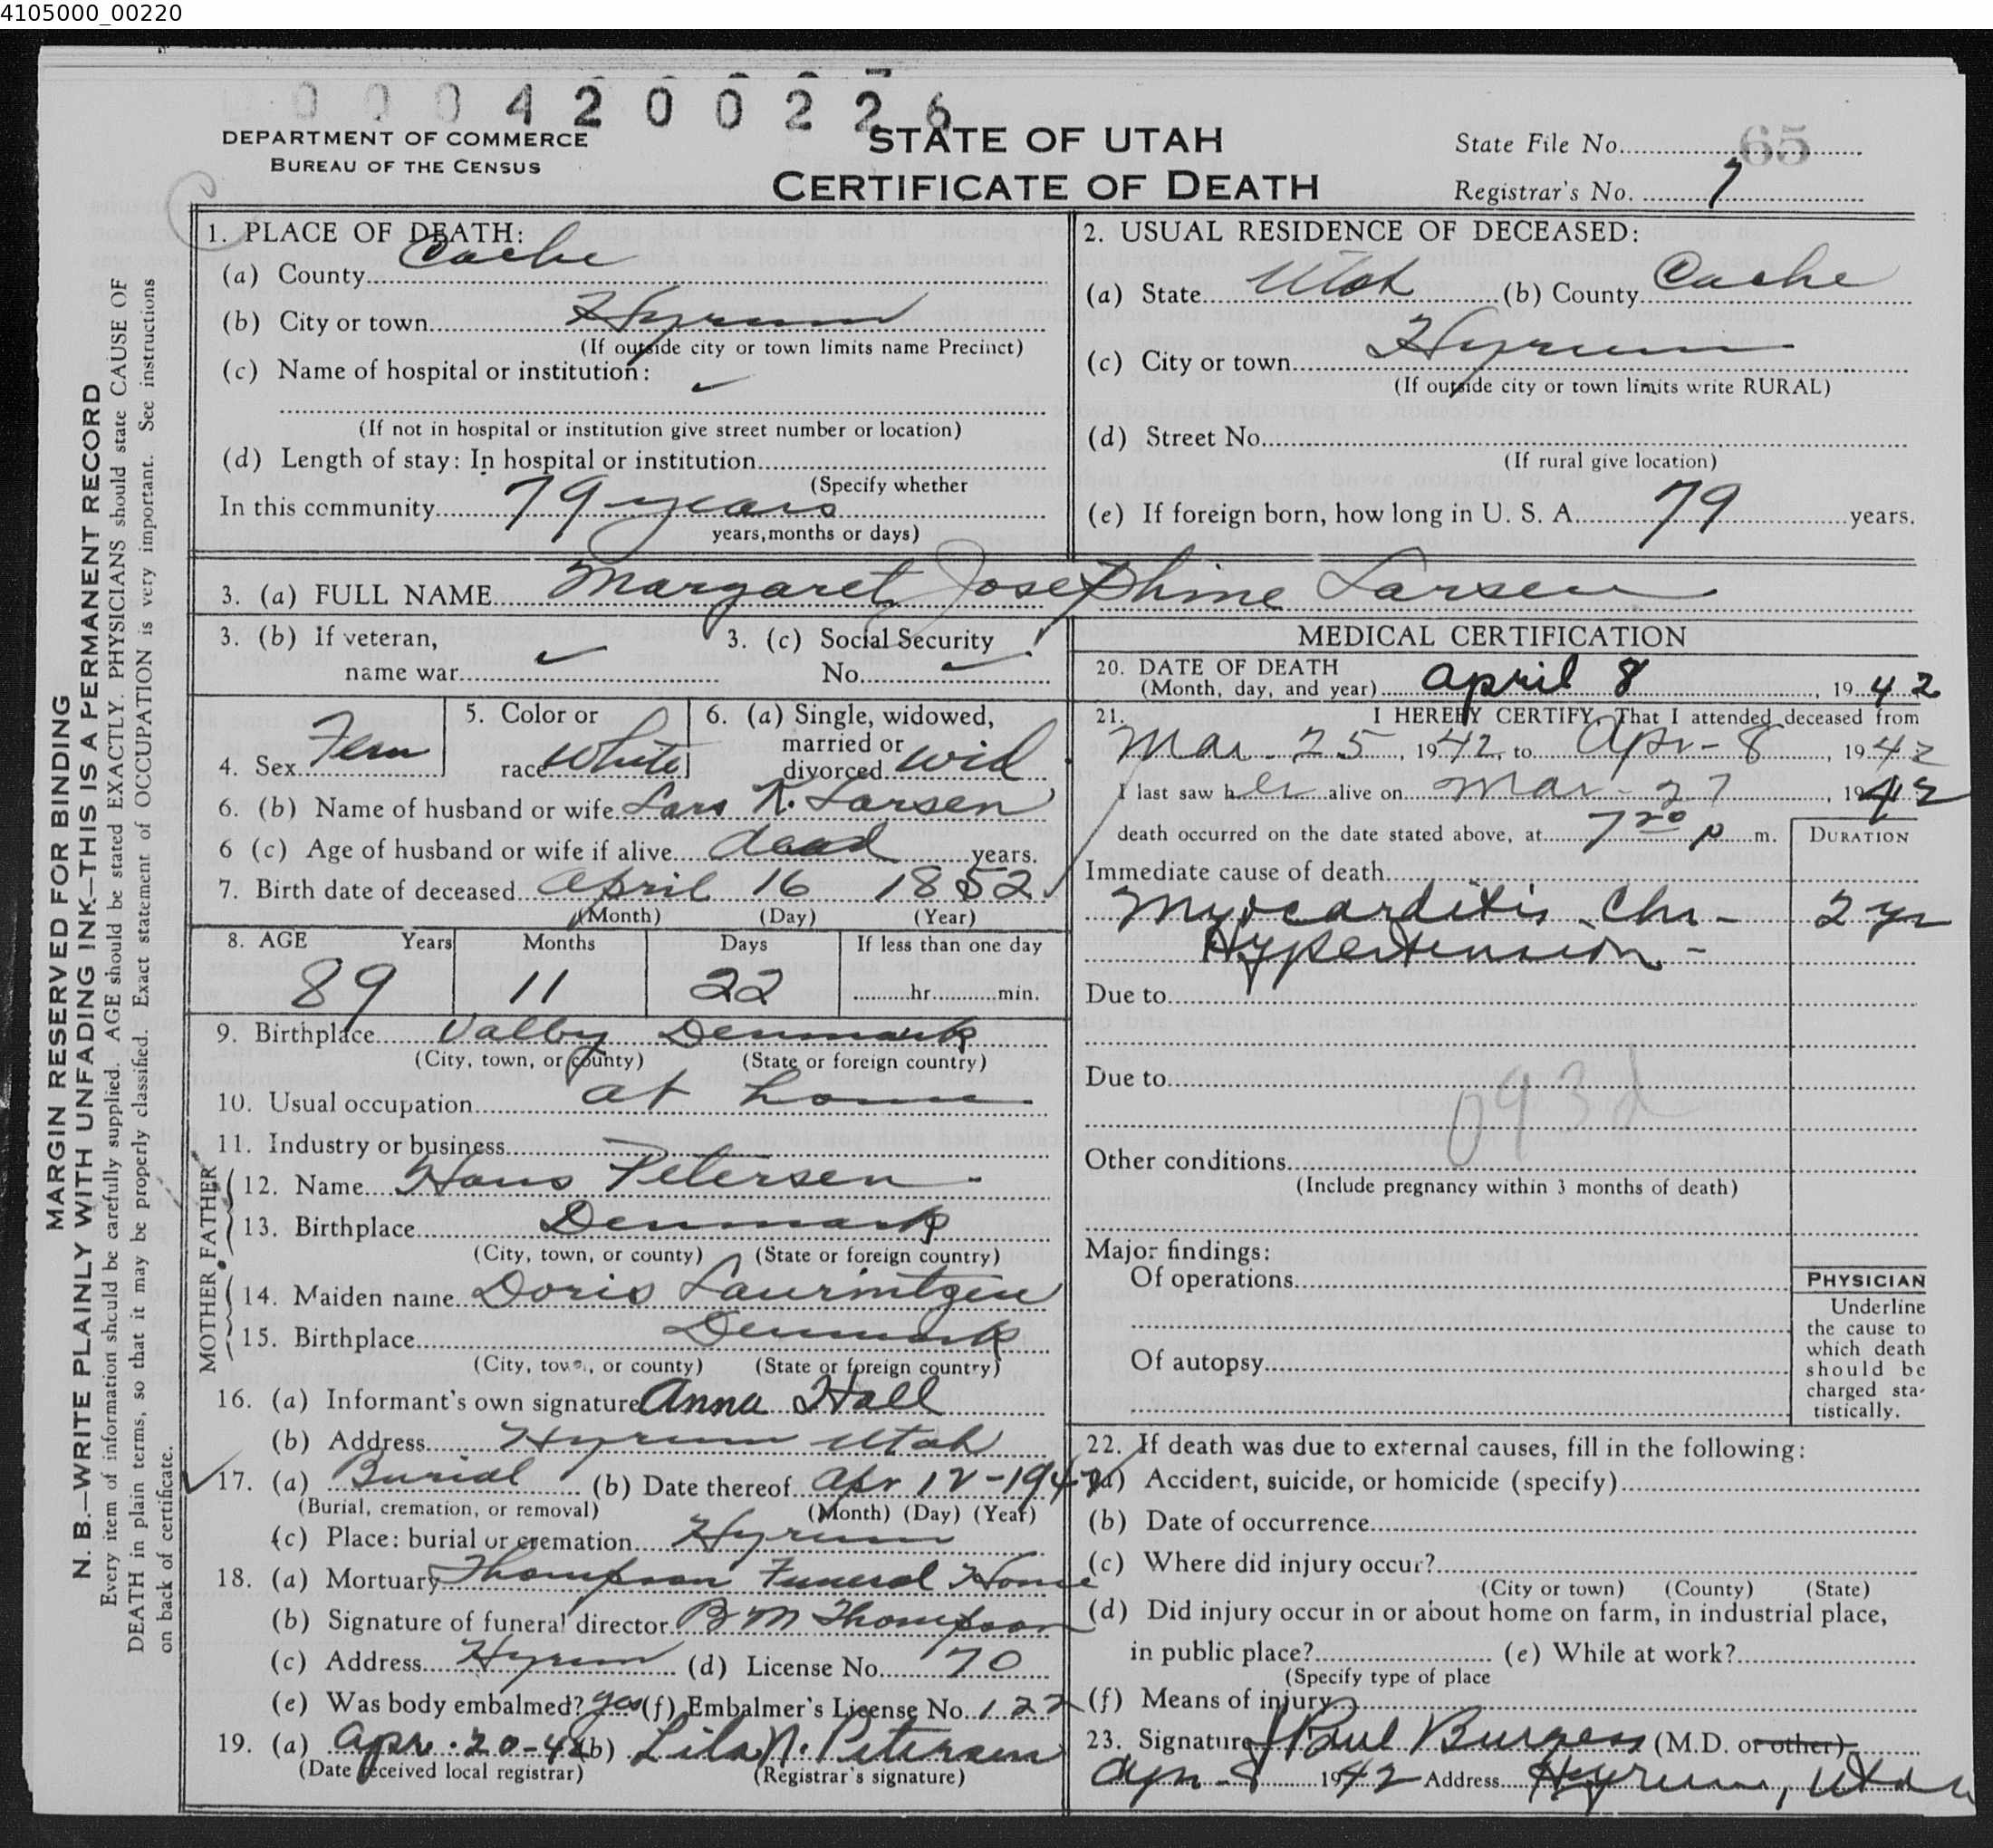 4105000_00220
0004200226
DEPARTMENT OF COMMERCE
BUREAU OF THE CENSUS
STATE OF UTAH
CERTIFICATE OF DEATH
State File No. 65
Registrar's No. 7
MARGIN RESERVED FOR BINDING
N. B.—WRITE PLAINLY WITH UNFADING INK—THIS IS A PERMANENT RECORD
Every item of information should be carefully supplied. AGE should be stated EXACTLY. PHYSICIANS should state CAUSE OF
DEATH in plain terms, so that it may be properly classified. Exact statement of OCCUPATION is very important. See instructions
on back of certificate.
1. PLACE OF DEATH:
(a) County Cache
(b) City or town Hyrum
(If outside city or town limits name Precinct)
(c) Name of hospital or institution: ✓
(If not in hospital or institution give street number or location)
(d) Length of stay: In hospital or institution
(Specify whether
In this community 79 years
years, months or days)
2. USUAL RESIDENCE OF DECEASED:
(a) State Utah (b) County Cache
(c) City or town Hyrum
(If outside city or town limits write RURAL)
(d) Street No.
(If rural give location)
(e) If foreign born, how long in U. S. A. 79 years.
3. (a) FULL NAME Margaret Josephine Larsen
3. (b) If veteran,
name war ✓
3. (c) Social Security
No. ✓
4. Sex Fem
5. Color or
race White
6. (a) Single, widowed,
married or
divorced Wid
6. (b) Name of husband or wife Lars K. Larsen
6 (c) Age of husband or wife if alive dead years.
7. Birth date of deceased April 16 1852
(Month) (Day) (Year)
8. AGE Years Months Days If less than one day
89 11 22 hr. min.
9. Birthplace Valby Denmark
(City, town, or county) (State or foreign country)
10. Usual occupation at home
11. Industry or business
FATHER
12. Name Hans Petersen
13. Birthplace Denmark
(City, town, or county) (State or foreign country)
MOTHER
14. Maiden name Doris Laurintzen
15. Birthplace Denmark
(City, town, or county) (State or foreign country)
16. (a) Informant's own signature Anna Hall
(b) Address Hyrum Utah
17. (a) Burial (b) Date thereof Apr 12-1942
(Burial, cremation, or removal) (Month) (Day) (Year)
(c) Place: burial or cremation Hyrum
18. (a) Mortuary Thompson Funeral Home
(b) Signature of funeral director B M Thompson
(c) Address Hyrum (d) License No. 70
(e) Was body embalmed? yes (f) Embalmer's License No. 122
19. (a) Apr. 20-42 (b) Lila N. Petersen
(Date received local registrar) (Registrar's signature)
MEDICAL CERTIFICATION
20. DATE OF DEATH
(Month, day, and year) April 8, 1942
21. I HEREBY CERTIFY, That I attended deceased from
Mar. 25, 1942, to Apr-8, 1942
I last saw her alive on Mar-27, 1942
death occurred on the date stated above, at 7 20 p m.
DURATION
Immediate cause of death
Myocarditis Chr- 2 yr
Hypertension-
Due to
Due to
093d
Other conditions
(Include pregnancy within 3 months of death)
Major findings:
Of operations
Of autopsy
PHYSICIAN
Underline
the cause to
which death
should be
charged sta-
tistically.
22. If death was due to external causes, fill in the following:
(a) Accident, suicide, or homicide (specify)
(b) Date of occurrence
(c) Where did injury occur?
(City or town) (County) (State)
(d) Did injury occur in or about home on farm, in industrial place,
in public place? (e) While at work?
(Specify type of place
(f) Means of injury
23. Signature J Paul Burgess (M.D. or other)
Apr-8 1942 Address Hyrum, Utah